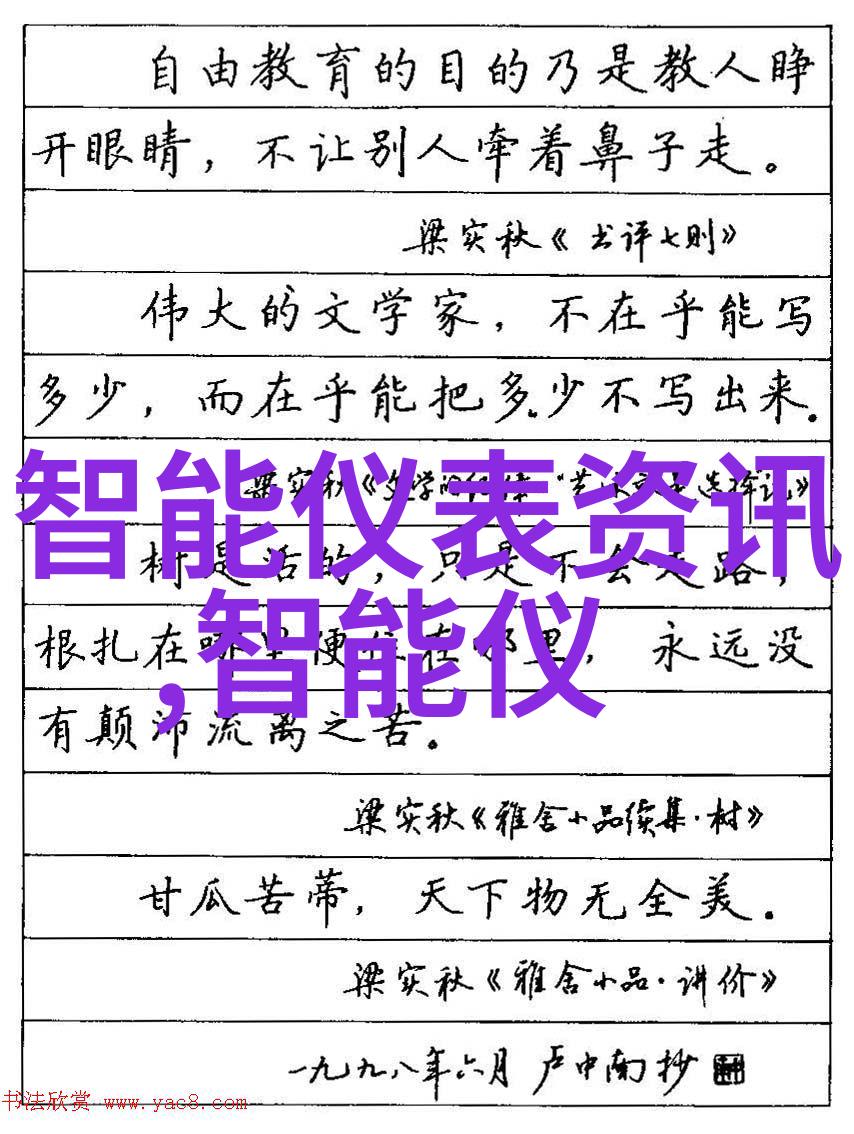 自由教育的目的乃是教人睁
开眼睛，不让别人牵着鼻子走。
梁实秋《书评七则》
伟大的文学家，不在乎能写
多少，而在乎能把多少不写出来.
梁实秋《文学的
智能仪表资讯
树是活的，只是不会走路，
,智能仪
根扎在哪里便住在哪里，永远没
有颠沛流离之苦。
梁实秋《雅舍小品续集·树》
甘瓜苦蒂，天下物无全美.
梁实秋《雅舍小品·讲价》
一九九八年六月 卢中南抄
书法欣赏 www.yac8.com